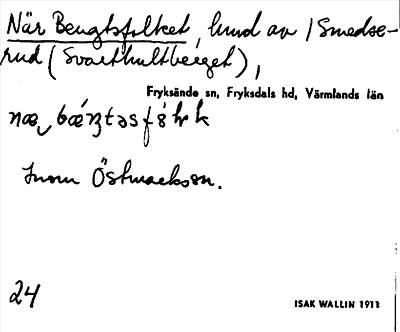 När Bengtsfolket, lund av /Smedse-
rud (Svarthultberget),
Fryksände sn, Fryksdals hd, Värmlands län
Inom Östmarks sn.
24
ISAK WALLIN 1911